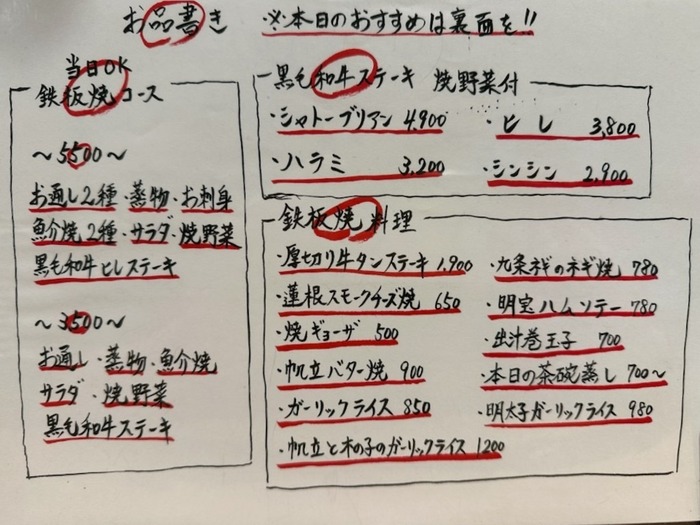 お品書き ※本日のおすすめは裏面を!!
当日OK
鉄板焼コース
～5500～
お通し2種・蒸物・お刺身
魚介焼2種・サラダ・焼野菜
黒毛和牛ヒレステーキ
～3500～
お通し・蒸物・魚介焼
サラダ・焼野菜
黒毛和牛ステーキ
黒毛和牛ステーキ 焼野菜付
・シャトーブリアン 4,900 ・ヒレ 3,800
・ハラミ 3,200 ・シンシン 2,900
鉄板焼料理
・厚切り牛タンステーキ 1,900
・蓮根スモークチーズ焼 650
・焼ギョーザ 500
・帆立バター焼 900
・ガーリックライス 850
・帆立と木の子のガーリックライス 1200
・九条ネギのネギ焼 780
・明宝ハムソテー 780
・出汁巻玉子 700
・本日の茶碗蒸し 700～
・明太子ガーリックライス 980